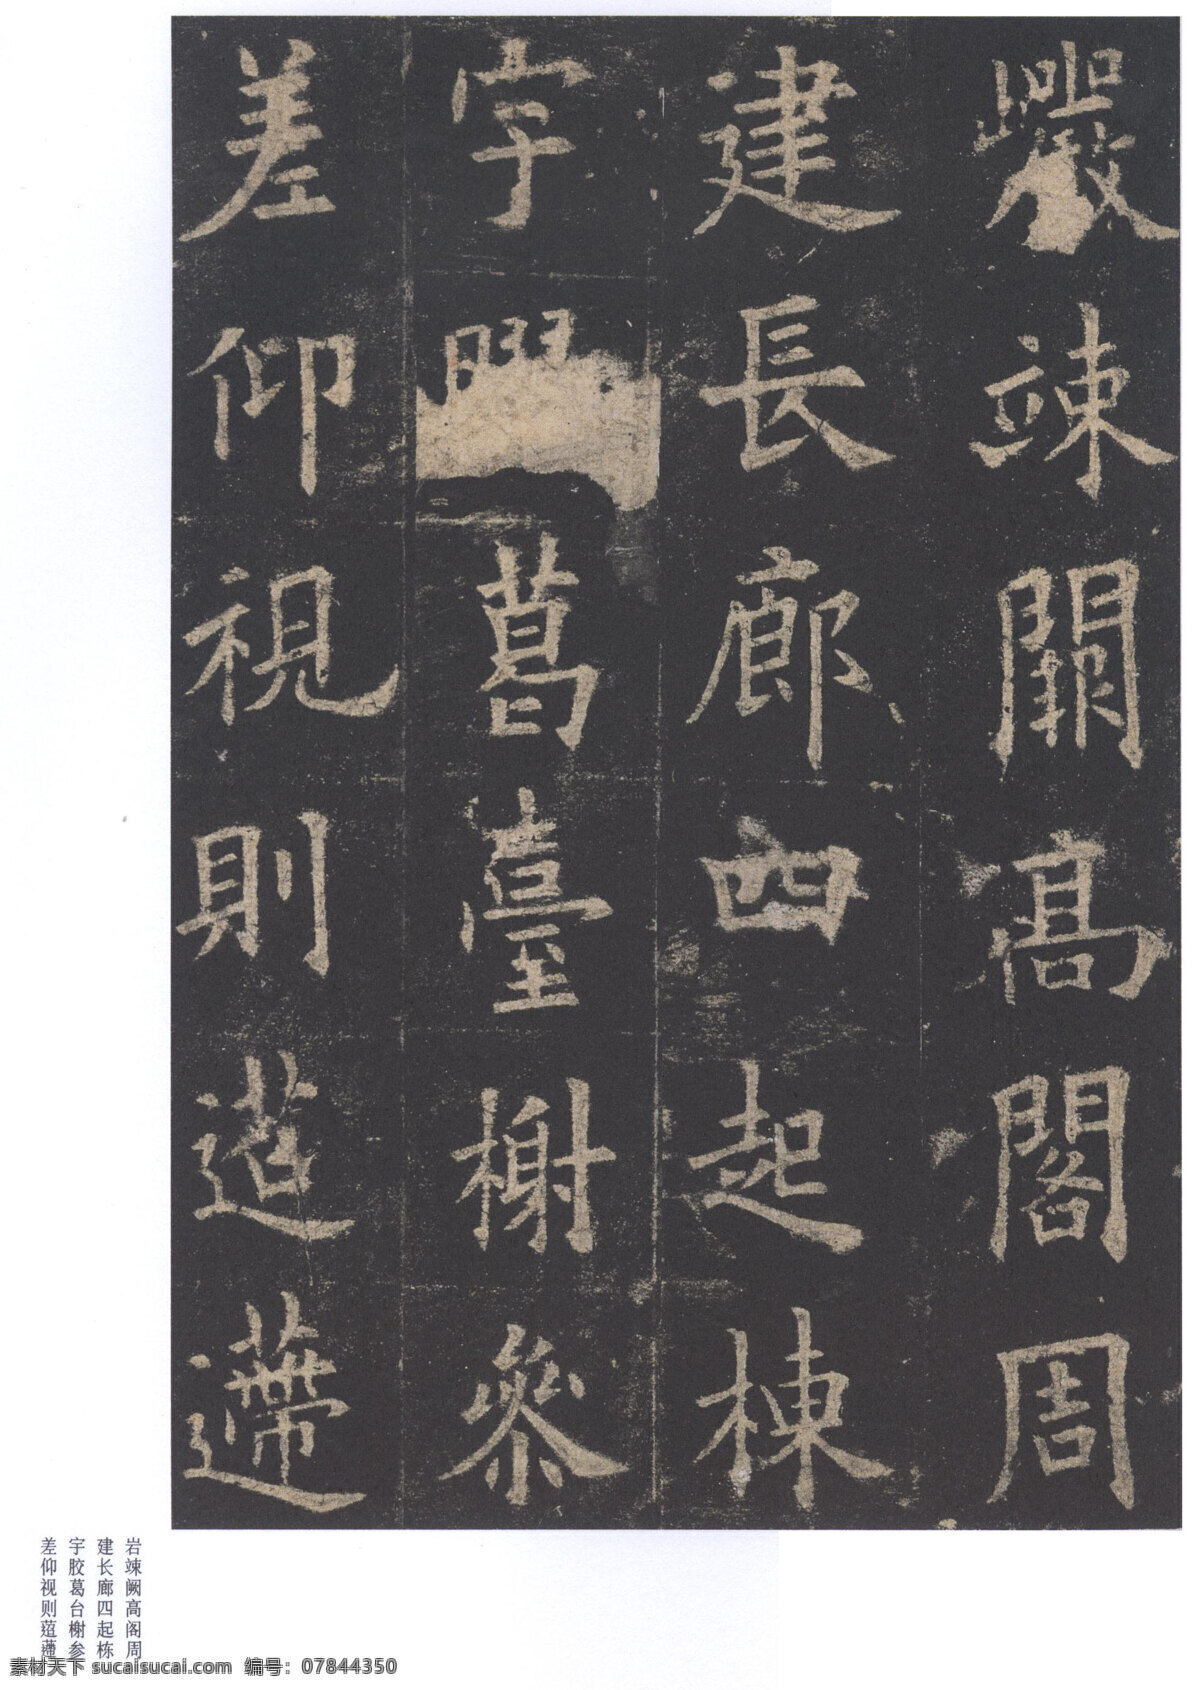 巖竦闕高閣周
建長廊四起棟
宇葛臺榭參
差仰視則迢遰
岩竦阙高阁周
建长廊四起栋
宇胶葛台榭参
差仰视则
素材天下 sucaisucai.com 编号：07844350